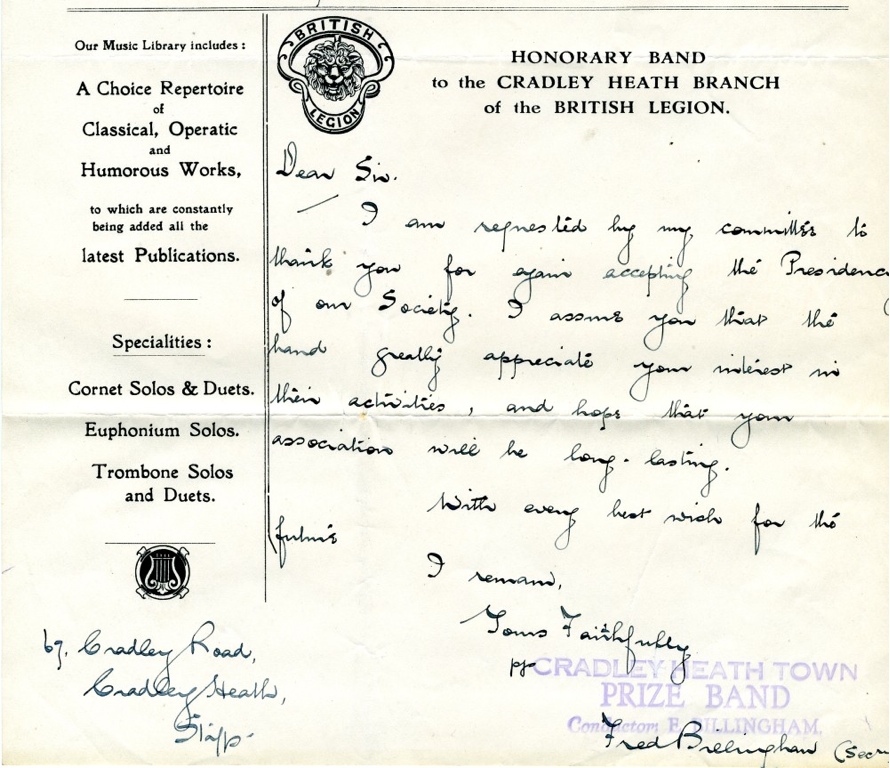 Our Music Library includes :
A Choice Repertoire
of
Classical, Operatic
and
Humorous Works,
to which are constantly
being added all the
latest Publications.
Specialities :
Cornet Solos & Duets.
Euphonium Solos.
Trombone Solos
and Duets.
BRITISH
LEGION
HONORARY BAND
to the CRADLEY HEATH BRANCH
of the BRITISH LEGION.
Dear Sir.
I am requested by my committee to
thank you for again accepting the Presidency
of our Society. I assure you that the
band greatly appreciate your interest in
their activities, and hope that your
association will be long-lasting.
With every best wish for the
future
I remain,
Yours Faithfully
pp CRADLEY HEATH TOWN
PRIZE BAND
Conductor: F. BILLINGHAM.
Fred Billingham (Secr
67, Cradley Road,
Cradley Heath,
Staffs.